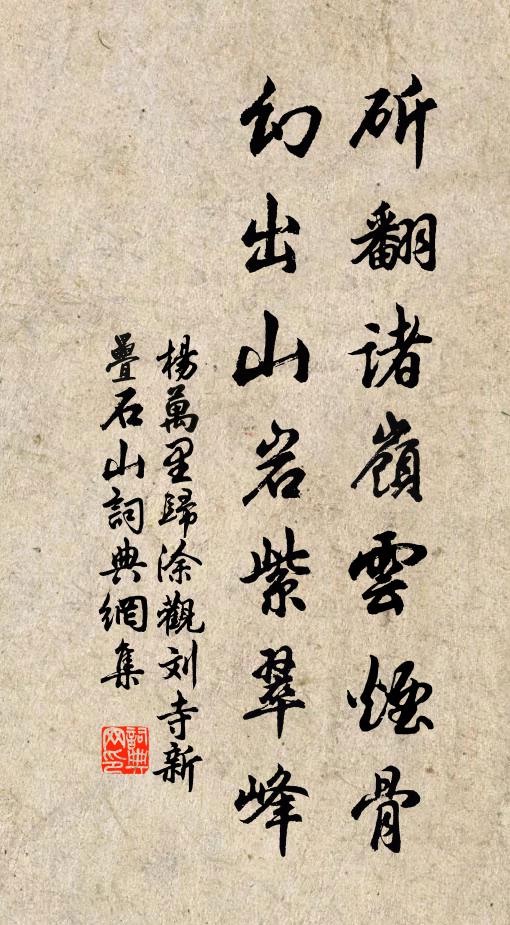 斫翻諸嶺雲煙骨
幻出山岩紫翠峰
楊萬里歸涂觀刘寺新
疊石山詞典網集
詞典网印